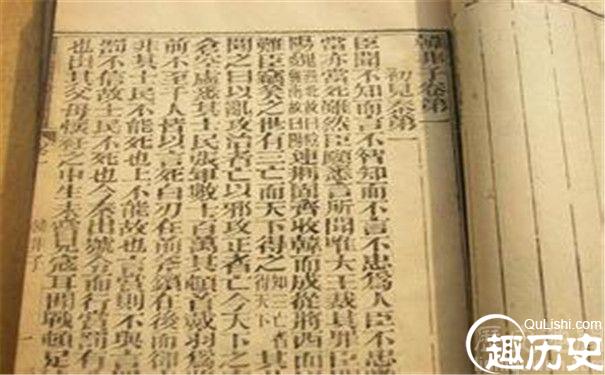 韓非子卷第一
初見秦第一
臣聞不知而言不智知而不言不忠為人臣不忠
當亦當死雖然臣願悉言所聞唯大王裁其罪臣聞
陽魏燕北故曰陰魏南故曰陽連荊固齊收韓而成從將西面
難臣竊笑之世有三亡而天下得之知三亡者得天下其
聞之曰以亂攻治者亡以邪攻正者亡今天下
倉空虛悉其士民張軍數十百萬其頓首戴羽為
前不至千人皆以言死白刃在前斧鑕在後而卻
非其士民不能死也上不能故也言賞則不與言
罰不信故士民不死也今秦出號令而行賞罰有
也出其父母懷衽之中生未嘗見寇耳聞戰頓足
韓非子
QuLishi.com
趣历史